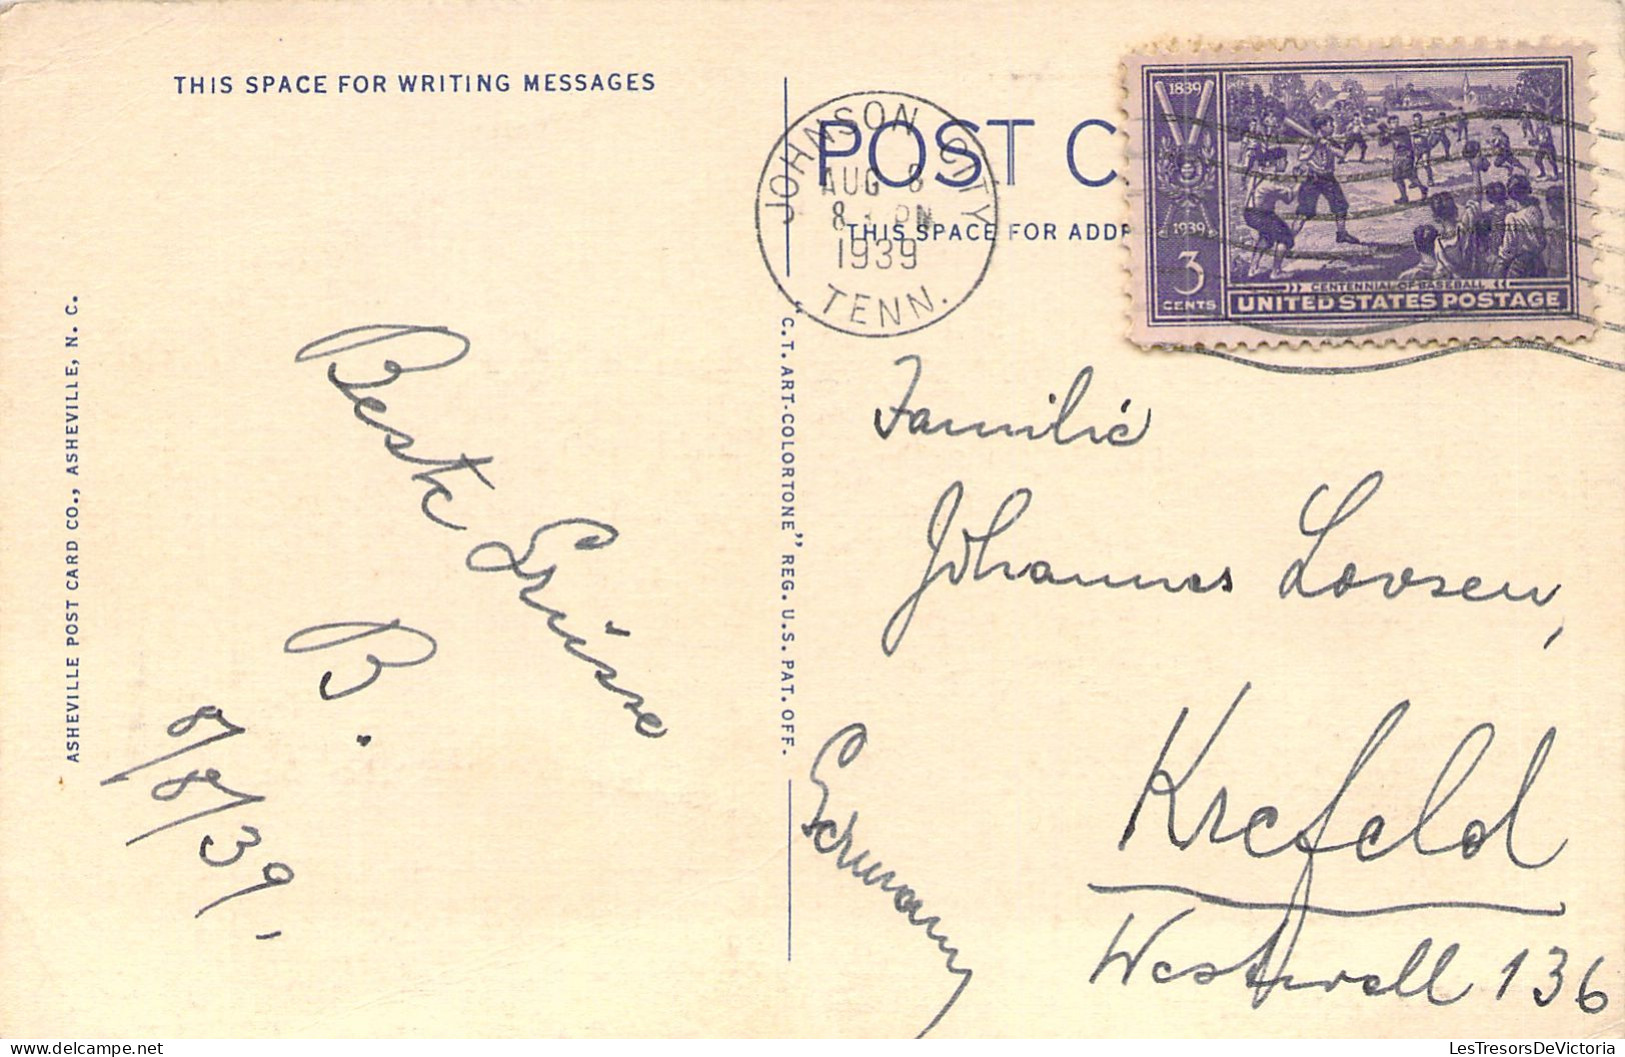 THIS SPACE FOR WRITING MESSAGES
ASHEVILLE POST CARD CO., ASHEVILLE, N. C.
Beste Grüsse
B.
8/8/39.
"C.T. ART-COLORTONE" REG. U.S. PAT. OFF.
JOHNSON CITY
AUG 8
8 PM
1939
TENN.
POST C
THIS SPACE FOR ADDR
1839
1939
3
CENTS
CENTENNIAL OF BASEBALL
UNITED STATES POSTAGE
Familie
Johannes Loosen,
Krefeld
Westwall 136
Germany
LesTresorsDeVictoria